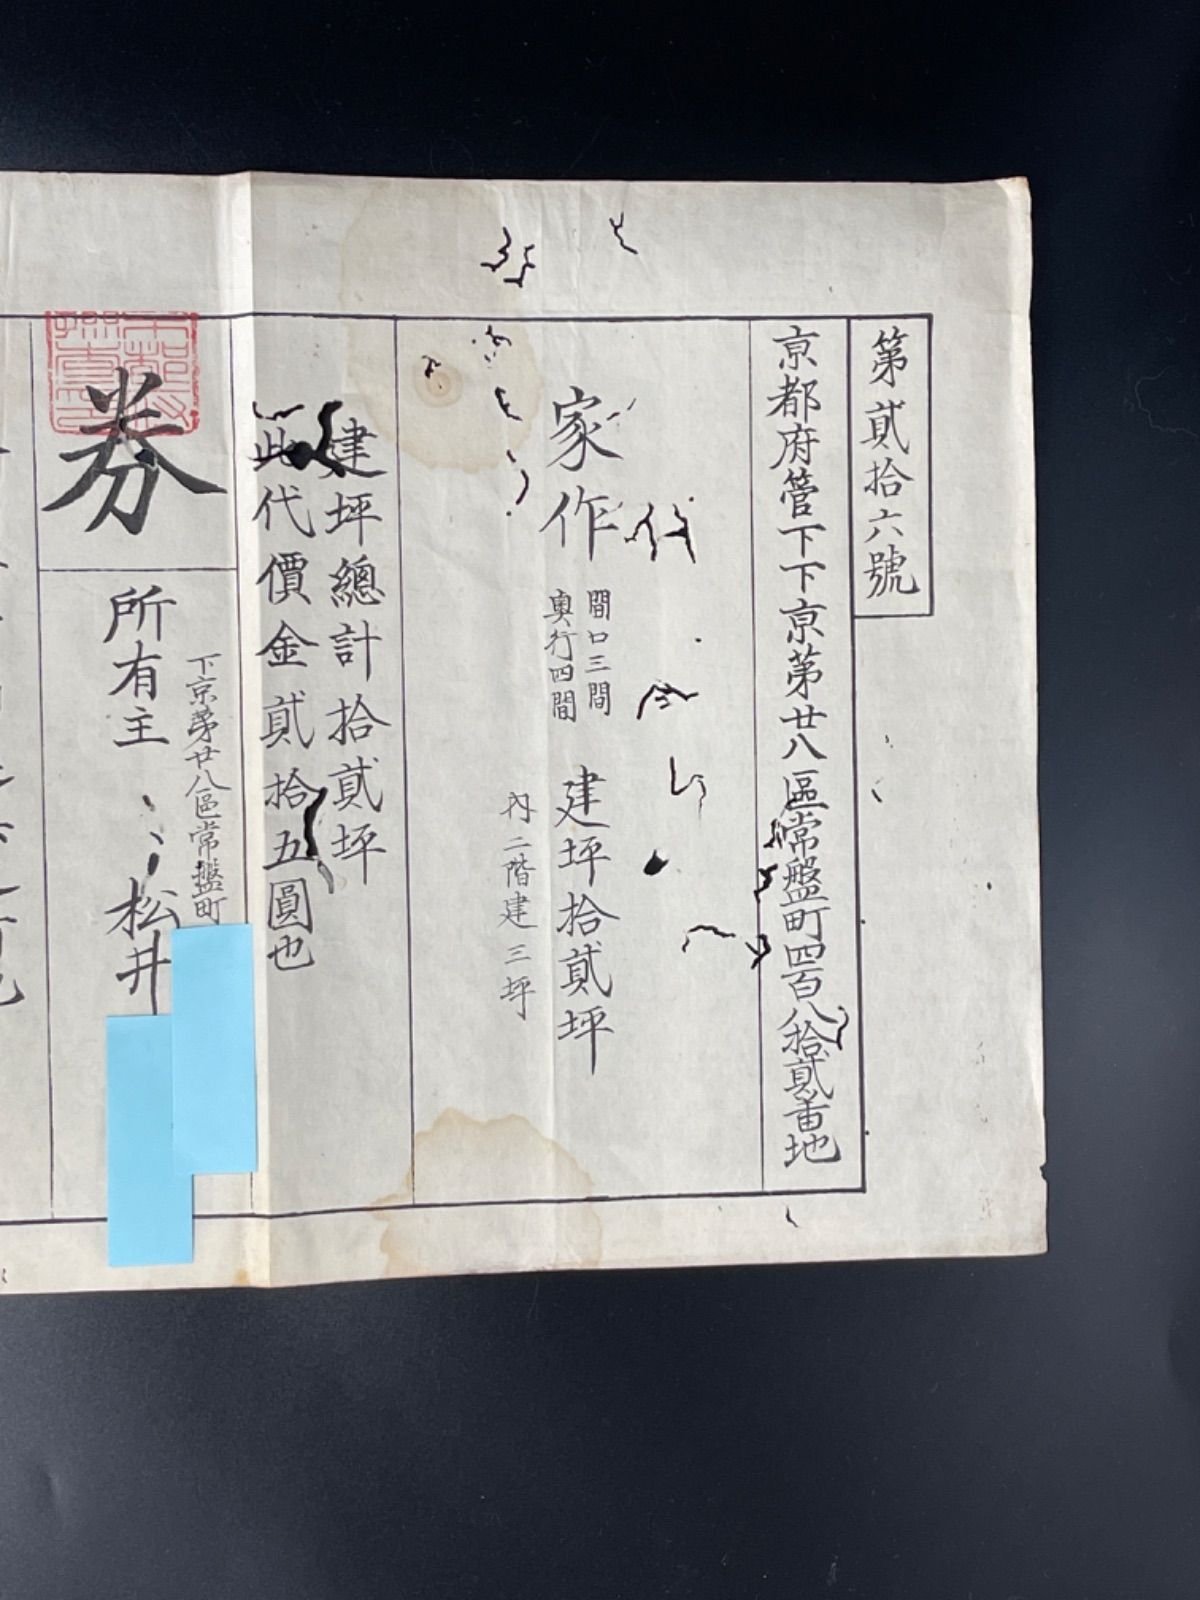 第貳拾六號
京都府管下下京第廿八區常盤町四百八拾貳番地
家作
間口三間
奥行四間
建坪拾貳坪
内二階建三坪
建坪總計拾貳坪
此代價金貳拾五圓也
券
下京第廿八區常盤町
所有主
松井